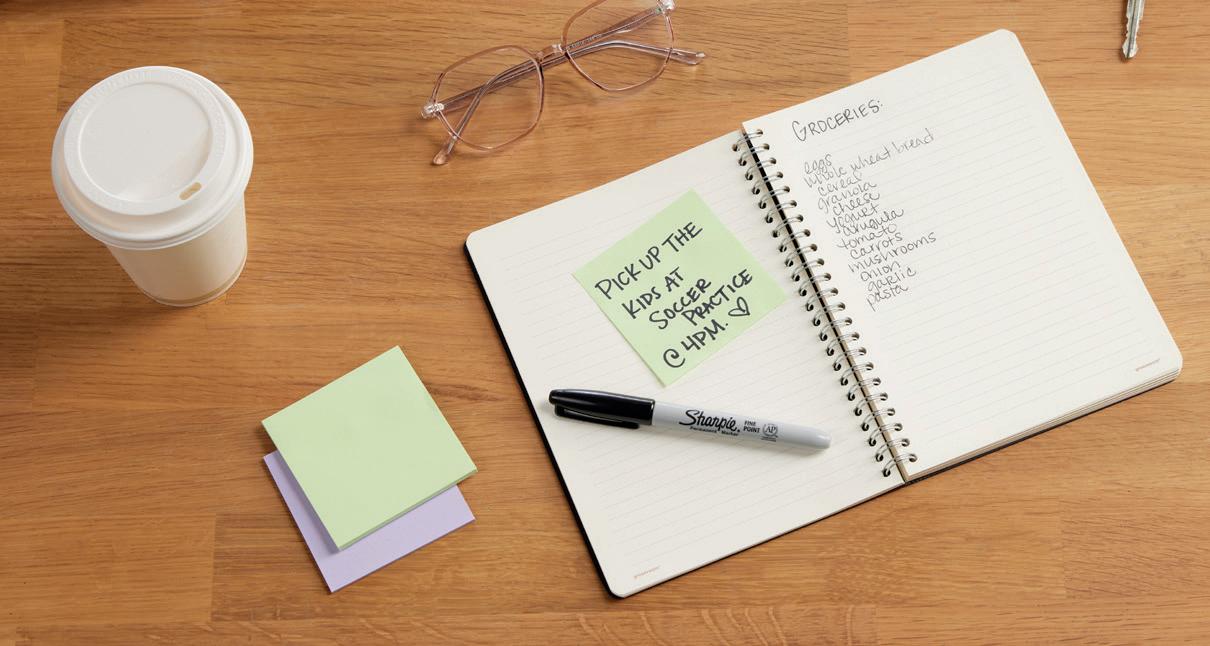 PICK UP THE
KIDS AT
SOCCER
PRACTICE
@ 4PM. ♡
Sharpie
Permanent Marker
FINE
POINT
AP
GROCERIES:
eggs
whole wheat bread
cereal
granola
cheese
yogurt
arugula
tomato
carrots
mushrooms
onion
garlic
pasta